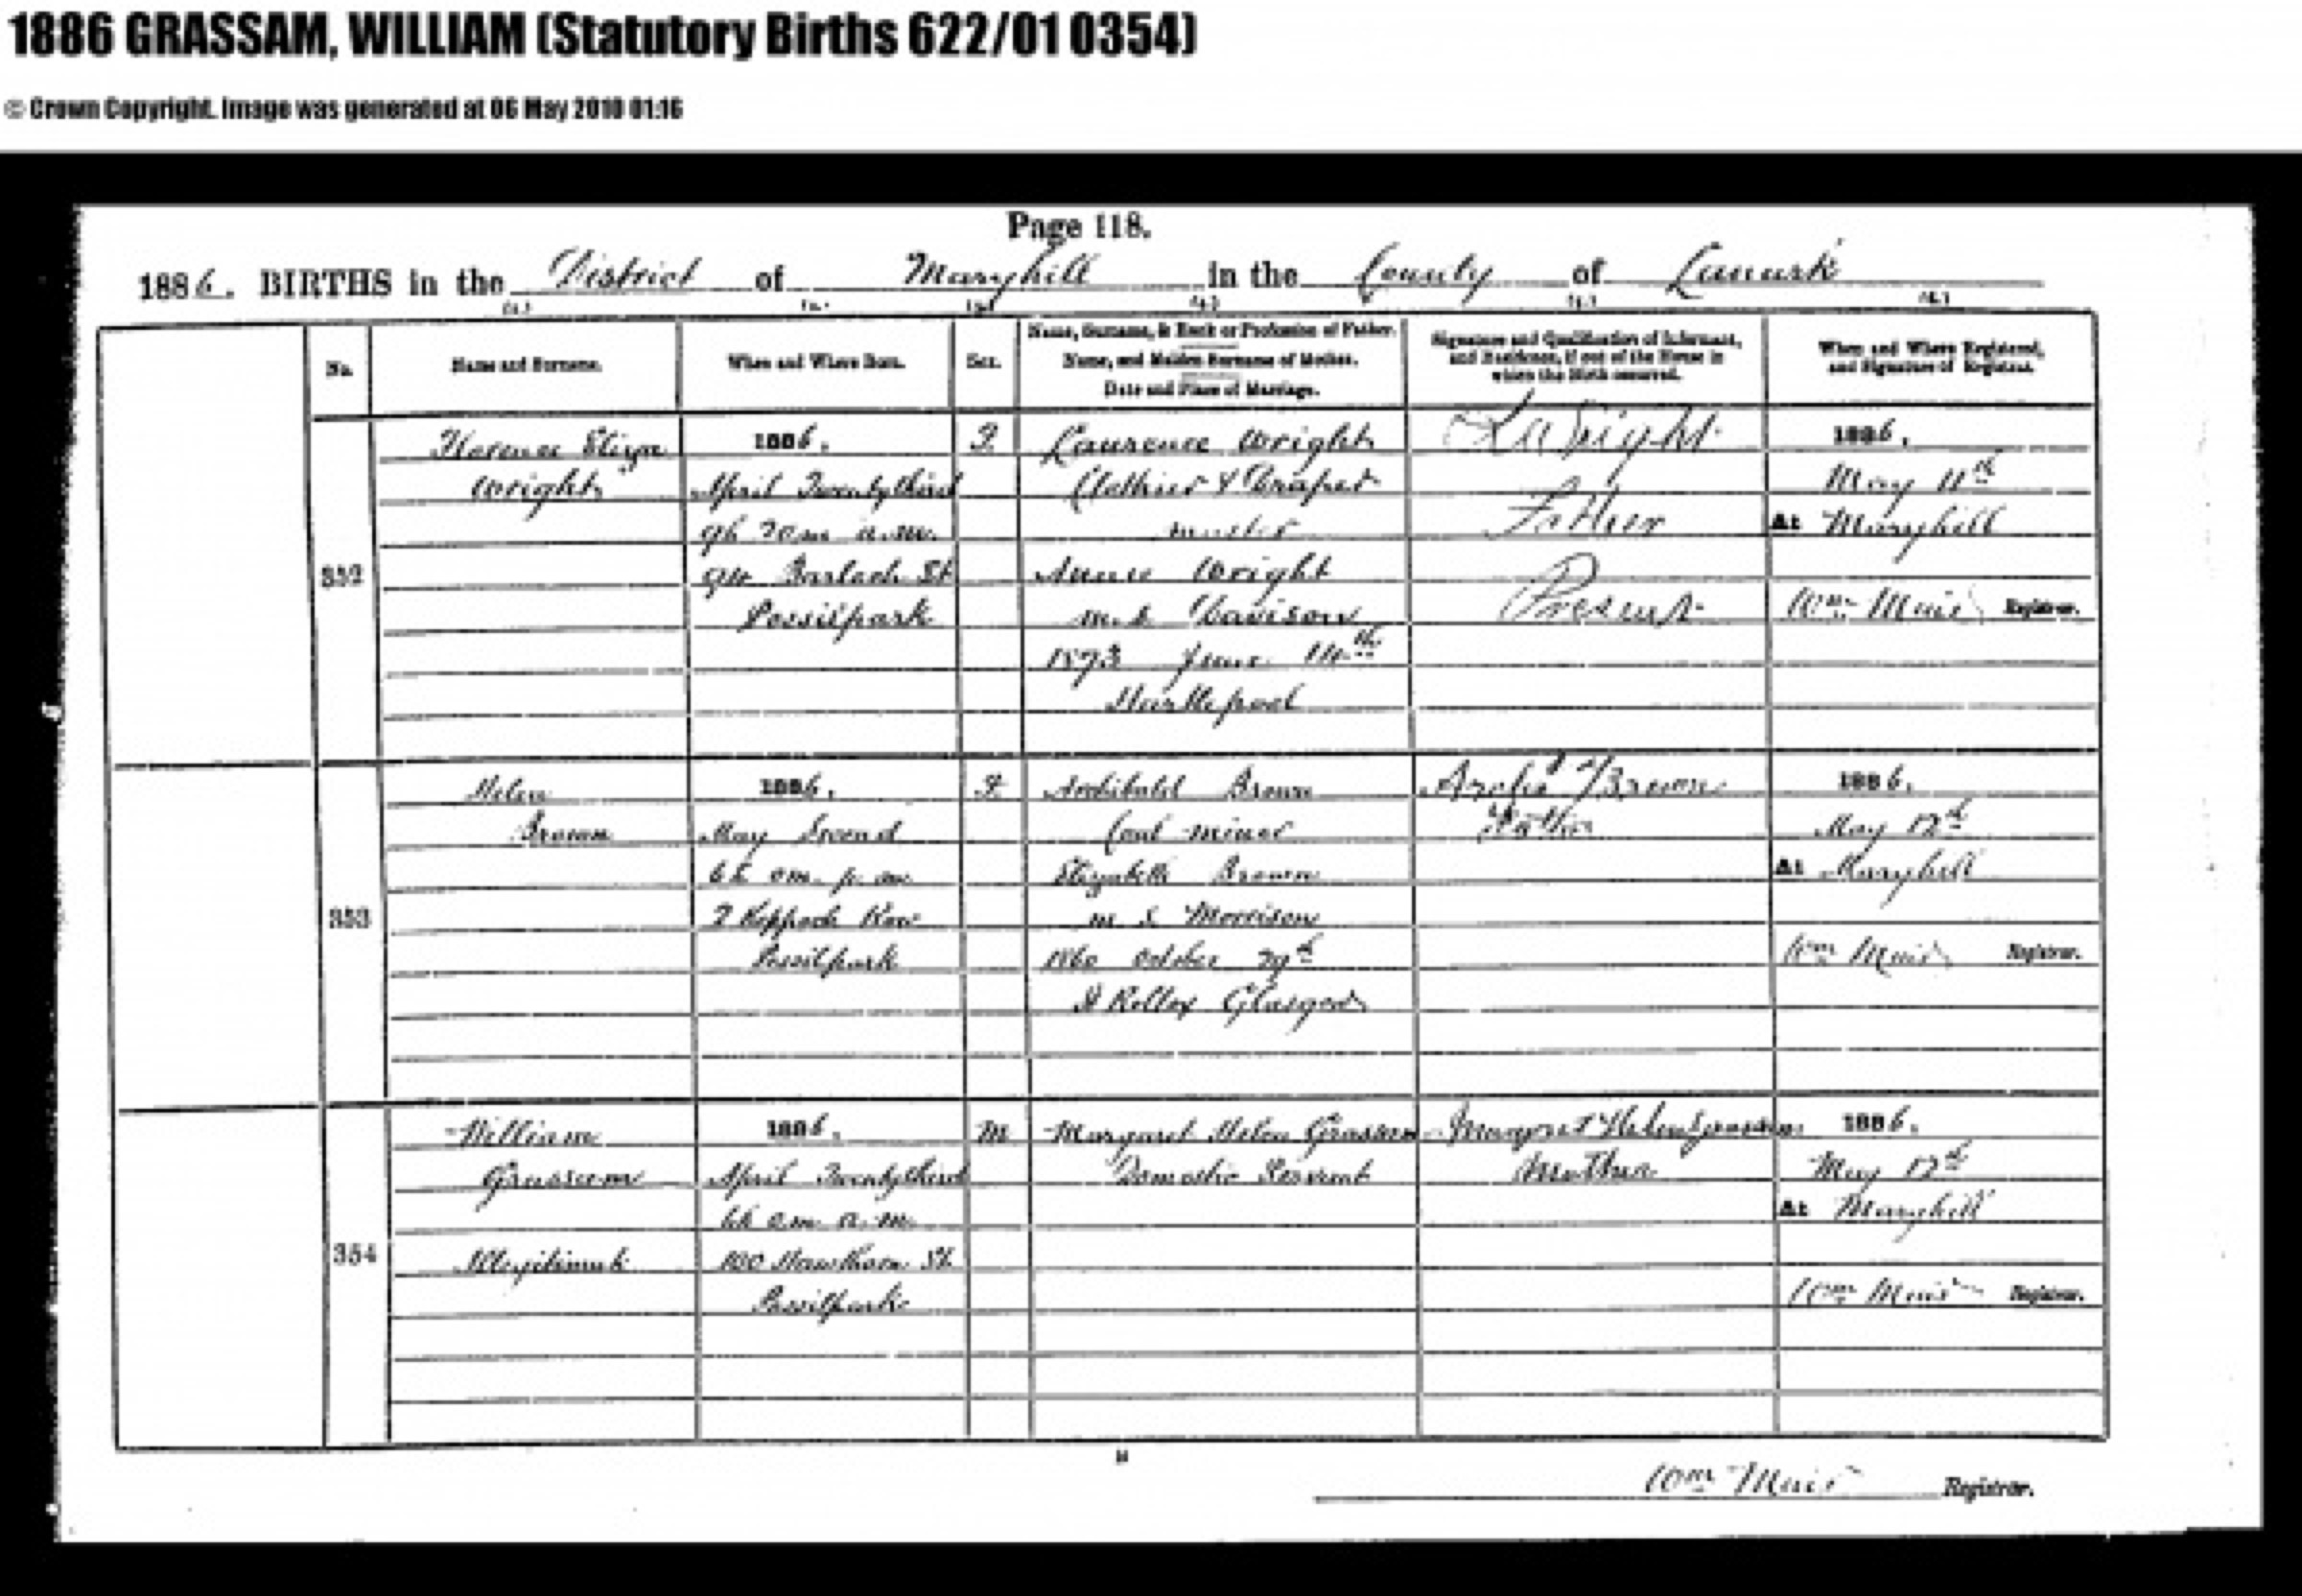 1886 GRASSAM, WILLIAM (Statutory Births 622/01 0354)
© Crown Copyright. Image was generated at 06 May 2010 01:16
Page 118.
1886. BIRTHS in the District of Maryhill in the County of Lanark
(1.) (2.) (3.) (4.) (5.) (6.)
No.
Name and Surname.
When and Where Born.
Sex.
Name, Surname, & Rank or Profession of Father.
Name, and Maiden Surname of Mother.
Date and Place of Marriage.
Signature and Qualification of Informant,
and Residence, if out of the House in
which the Birth occurred.
When and Where Registered,
and Signature of Registrar.
352
Florence Eliza
Wright
1886.
April Twentythird
9h 20m a.m.
Street
Possilpark
F
Laurence Wright
Clothier & Draper
master
Annie Wright
m.s. Davison
1873 June 14th
Hartlepool
L Wright
Father
Present
1886.
May 11th
At Maryhill
Wm Muir Registrar.
353
Helen
Brown
1886.
May Second
6h 0m. p.m.
2 Keppoch Row
Possilpark
F
Archibald Brown
Coal miner
Elizabeth Brown
m.s. Morrison
1860 October 29th
St Rollox Glasgow
Archd Brown
Father
1886.
May 12th
At Maryhill
Wm Muir Registrar.
354
William
Grassam
Illegitimate
1886.
April Twentythird
6h 0m a.m.
100 Hawthorn St.
Possilpark
M
Margaret Helen Grassam
Domestic Servant
Margret Helen Grassam
Mother
1886.
May 12th
At Maryhill
Wm Muir Registrar.
Wm Muir Registrar.